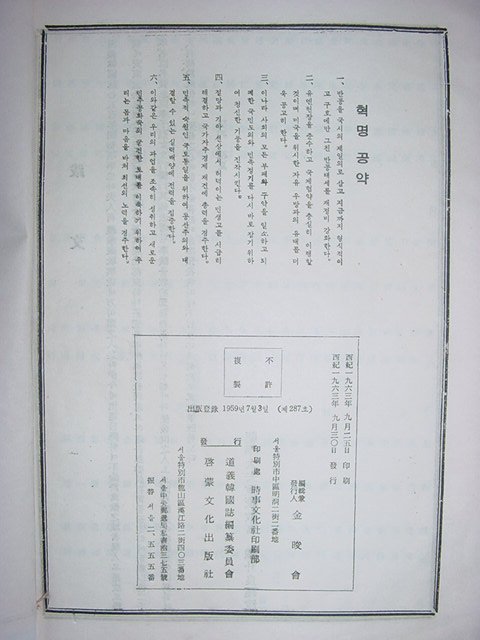 혁명 공약
一、반공을 국시의 제일의로 삼고 지금까지 형식적이
고 구호에만 그친 반공태세를 재정비 강화한다。
二、유엔헌장을 준수하고 국제협약을 충실히 이행할
것이며 미국을 위시한 자유 우방과의 유대를 더
욱 공고히 한다。
三、이나라 사회의 모든 부패와 구악을 일소하고 퇴
폐한 국민도의와 민족정기를 다시 바로 잡기 위하
여 청신한 기풍을 진작시킨다。
四、절망과 기아 선상에서 허덕이는 민생고를 시급히
해결하고 국가자주경제 재건에 총력을 경주한다。
五、민족적 숙원인 국토통일을 위하여 공산주의와 대
결할 수 있는 실력배양에 전력을 집중한다。
六、이와같은 우리의 과업을 조속히 성취하고 새로운
민주공화국의 굳건한 토대를 이룩하기 위하여 우
리는 몸과 마음을 바쳐 최선의 노력을 경주한다。
西紀一九六三年 九月二五日 印刷
西紀一九六三年 九月三〇日 發行
不許
複製
出版登錄 1959년 7월 3일 (제 287호)
編輯兼
發行人 金晙會
서울特別市中區明洞二街二番地
印刷處 時事文化社印刷部
發行
道義韓國誌編纂委員會
啓蒙文化出版社
서울特別市龍山區漢江路二街四〇三番地
서울中央郵遞局私書函三七五號
振替 서울 二、五五五番